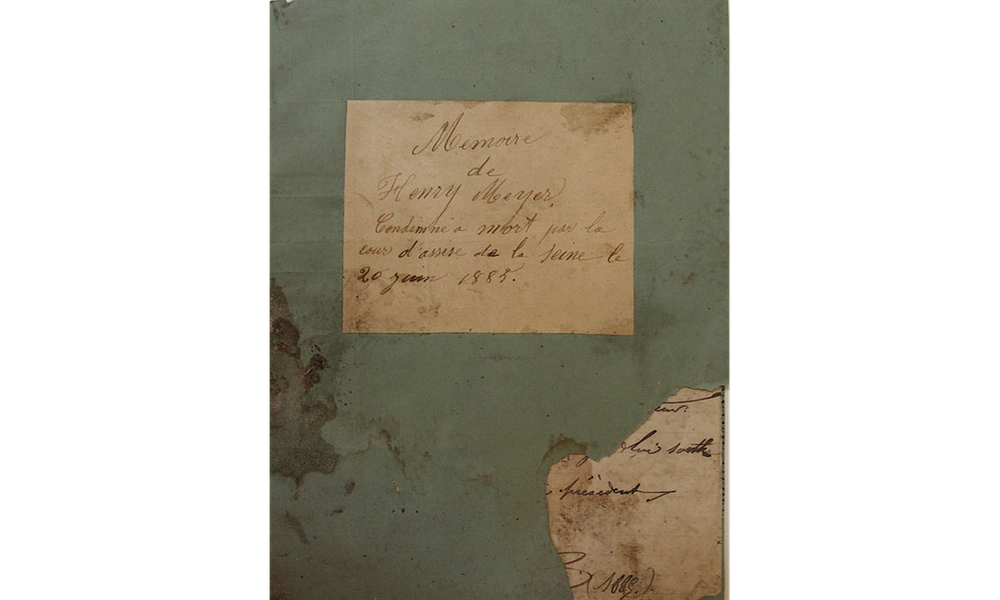 Memoire
de
Henry Meyer.
Condemné a mort par la
cour d'assise de la seine le
20 juin 1885.
président
(1885.)